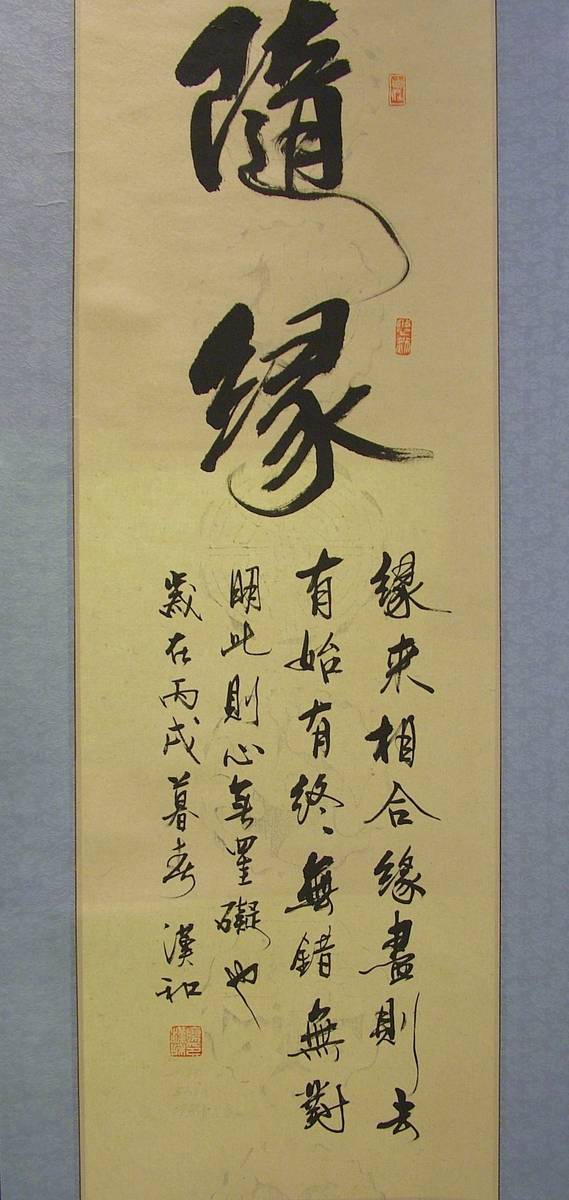 隨緣
緣來相合緣盡則去
有始有終無錯無對
明此則心無罣礙也
歲在丙戌暮春 漢和